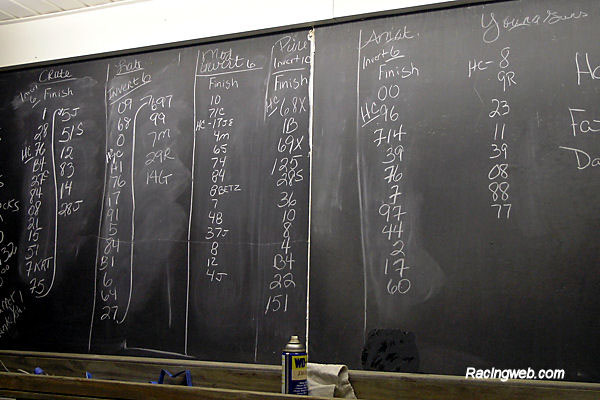 Crate
Invert
6 Finish
1
28
HC 76
B4
25
84
08
21
15
51
7KAT
75
5J
51S
12
83
14
28J
Late
Invert 6
09
68
0
41
76
17
91
5
84
B1
6
64
27
7697
99
7M
29R
14G
Mod
Invert 6
Finish
10
71C
HC-17JE
4M
65
74
84
8GETZ
7
48
37J
8
12
4J
Pure
Invert 10
Finish
HC 68X
1B
69X
125
28S
36
10
8
4
B4
22
151
Amat.
Invert 6
Finish
00
HC 96
714
39
76
7
97
44
2
17
60
Young Guns
HC-8
9R
23
11
39
08
88
77
WD
RacIngweb.com